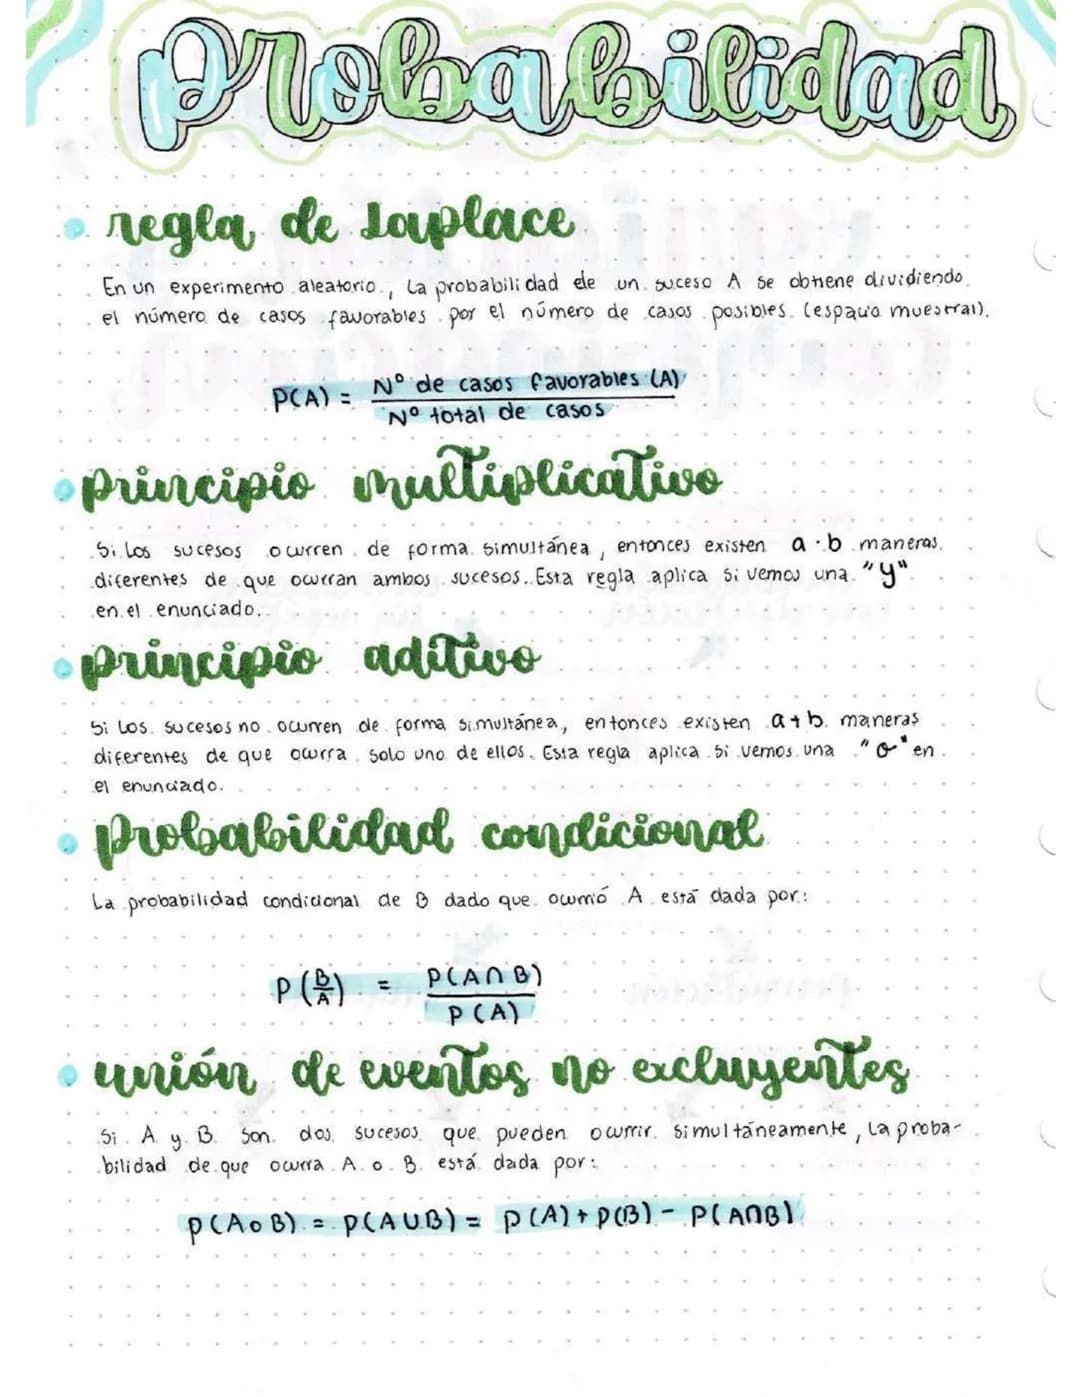 probabilidad
regla de Laplace
En un experimento aleatorio, la probabilidad de un suceso A se obtiene dividiendo
el número de casos favorables por el número de casos posibles (espacio muestral).
P(A) = Nº de casos favorables (A)
Nº total de casos
principio multiplicativo
Si los sucesos ocurren de forma simultánea, entonces existen a · b maneras
diferentes de que ocurran ambos sucesos. Esta regla aplica si vemos una "y"
en el enunciado.
principio aditivo
Si los sucesos no ocurren de forma simultánea, entonces existen a + b maneras
diferentes de que ocurra solo uno de ellos. Esta regla aplica si vemos una "o" en
el enunciado.
probabilidad condicional
La probabilidad condicional de B dado que ocurrió A está dada por:
P(B/A) = P(A∩B)
P(A)
unión de eventos no excluyentes
Si A y B son dos sucesos que pueden ocurrir simultáneamente, la proba-
bilidad de que ocurra A o B está dada por:
P(A o B) = P(A∪B) = P(A) + P(B) - P(A∩B)